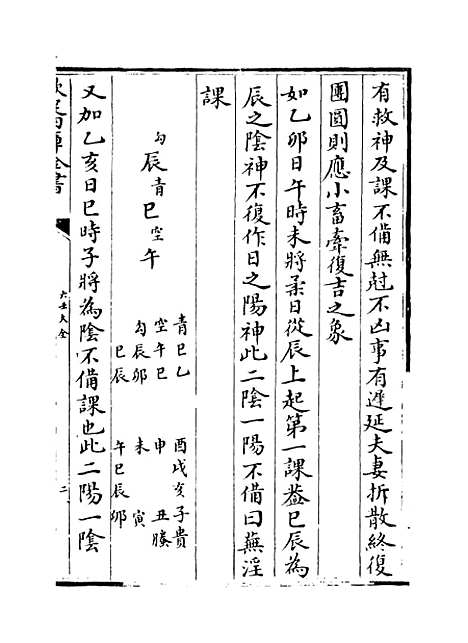 有救神及課不備無尅不凶事有遲延夫妻拆散終復
團圓則應小畜牽復吉之象
如乙卯日午時未將柔日從辰上起第一課葢巳辰為
辰之陰神不復作日之陽神此二陰一陽不備曰蕪淫
課
勾辰青巳空午
青巳乙
空午巳
勾辰卯
巳辰
酉戌亥子貴
申丑螣
未寅
午巳辰卯
又加乙亥日巳時子將為陰不備課也此二陽一陰
六壬大全
二